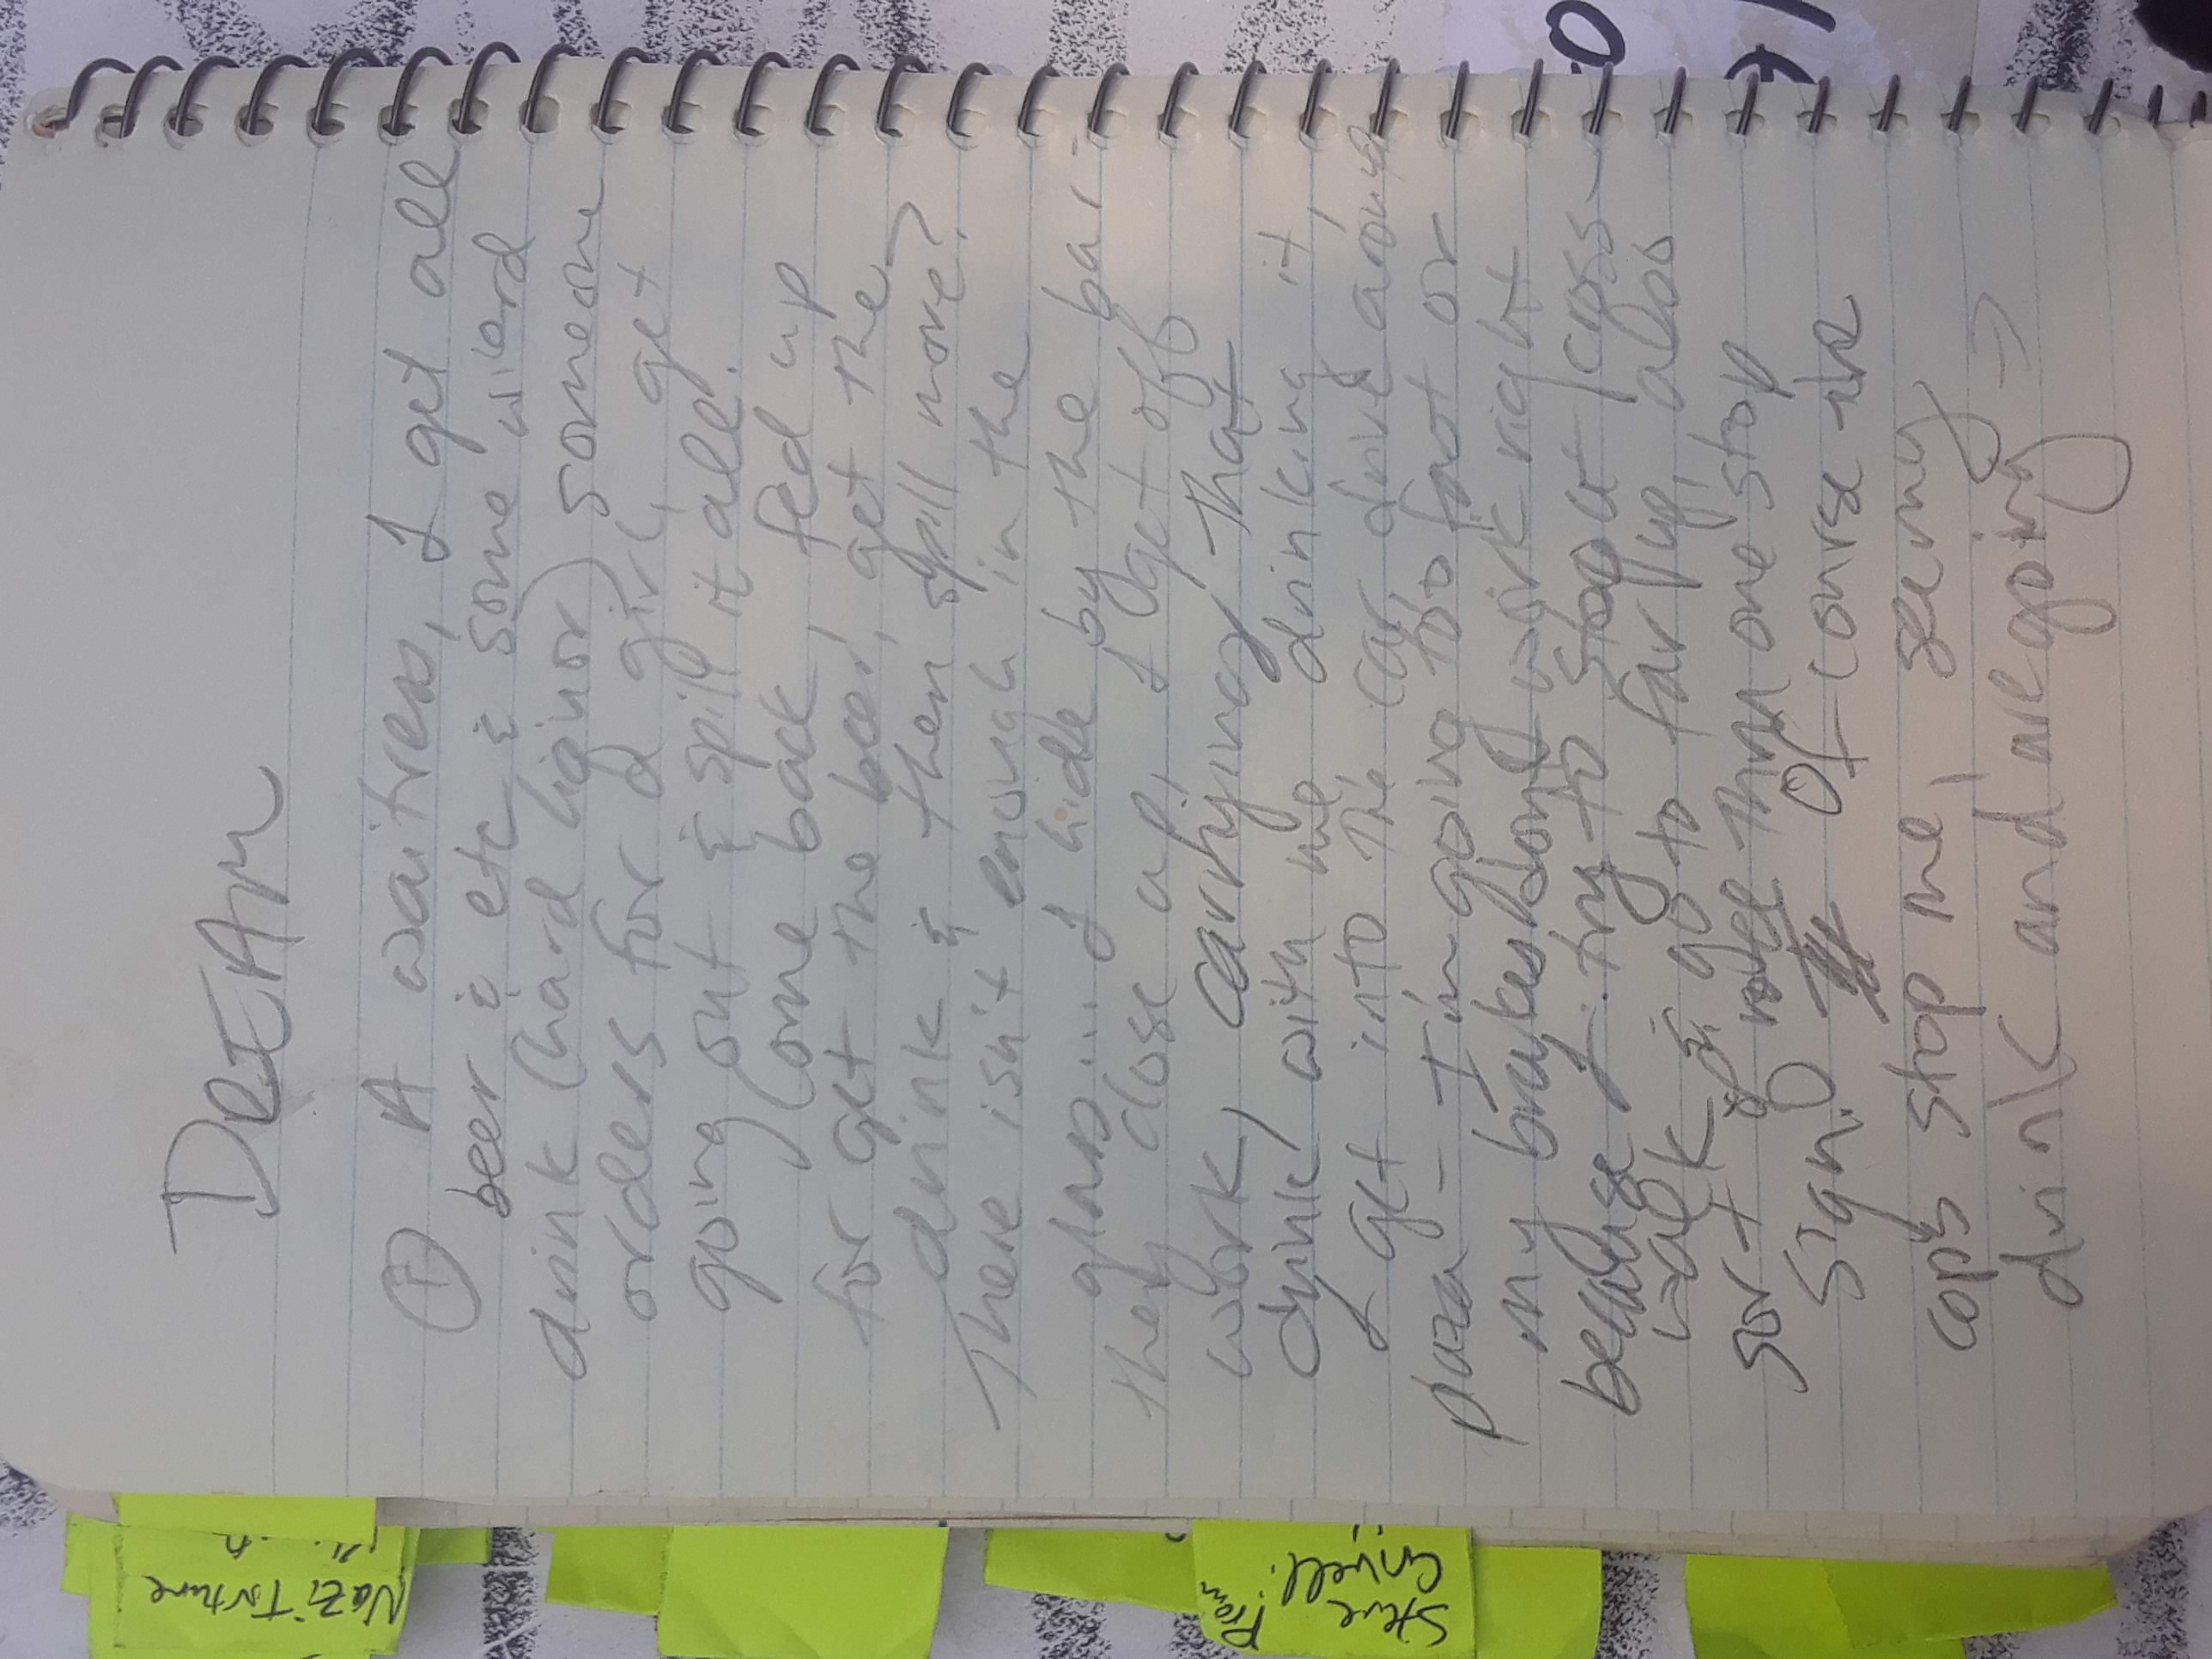 DREAM
① A waitress, I get all
beer & etc & some wierd
drink (hard liquor) someone
orders for a girl, get
going out & spill it all.
Come back, fed up
for get the beer, get the
drink & then spill more?
There isn't enough in the
glass... I hide by the bar.
they close up, I get off
work, carrying that
drink, with me drinking it,
I get into the car, drive around
para - I'm going too fast or
my brakes don't work right
because I try to stop at / cross-
walk & go to far / yup, also
sort of motel then one stop
sign.) Of course the
cops stop me, seeing
drink and all going →
Nazi Torture
Steve
Covell:
Prom